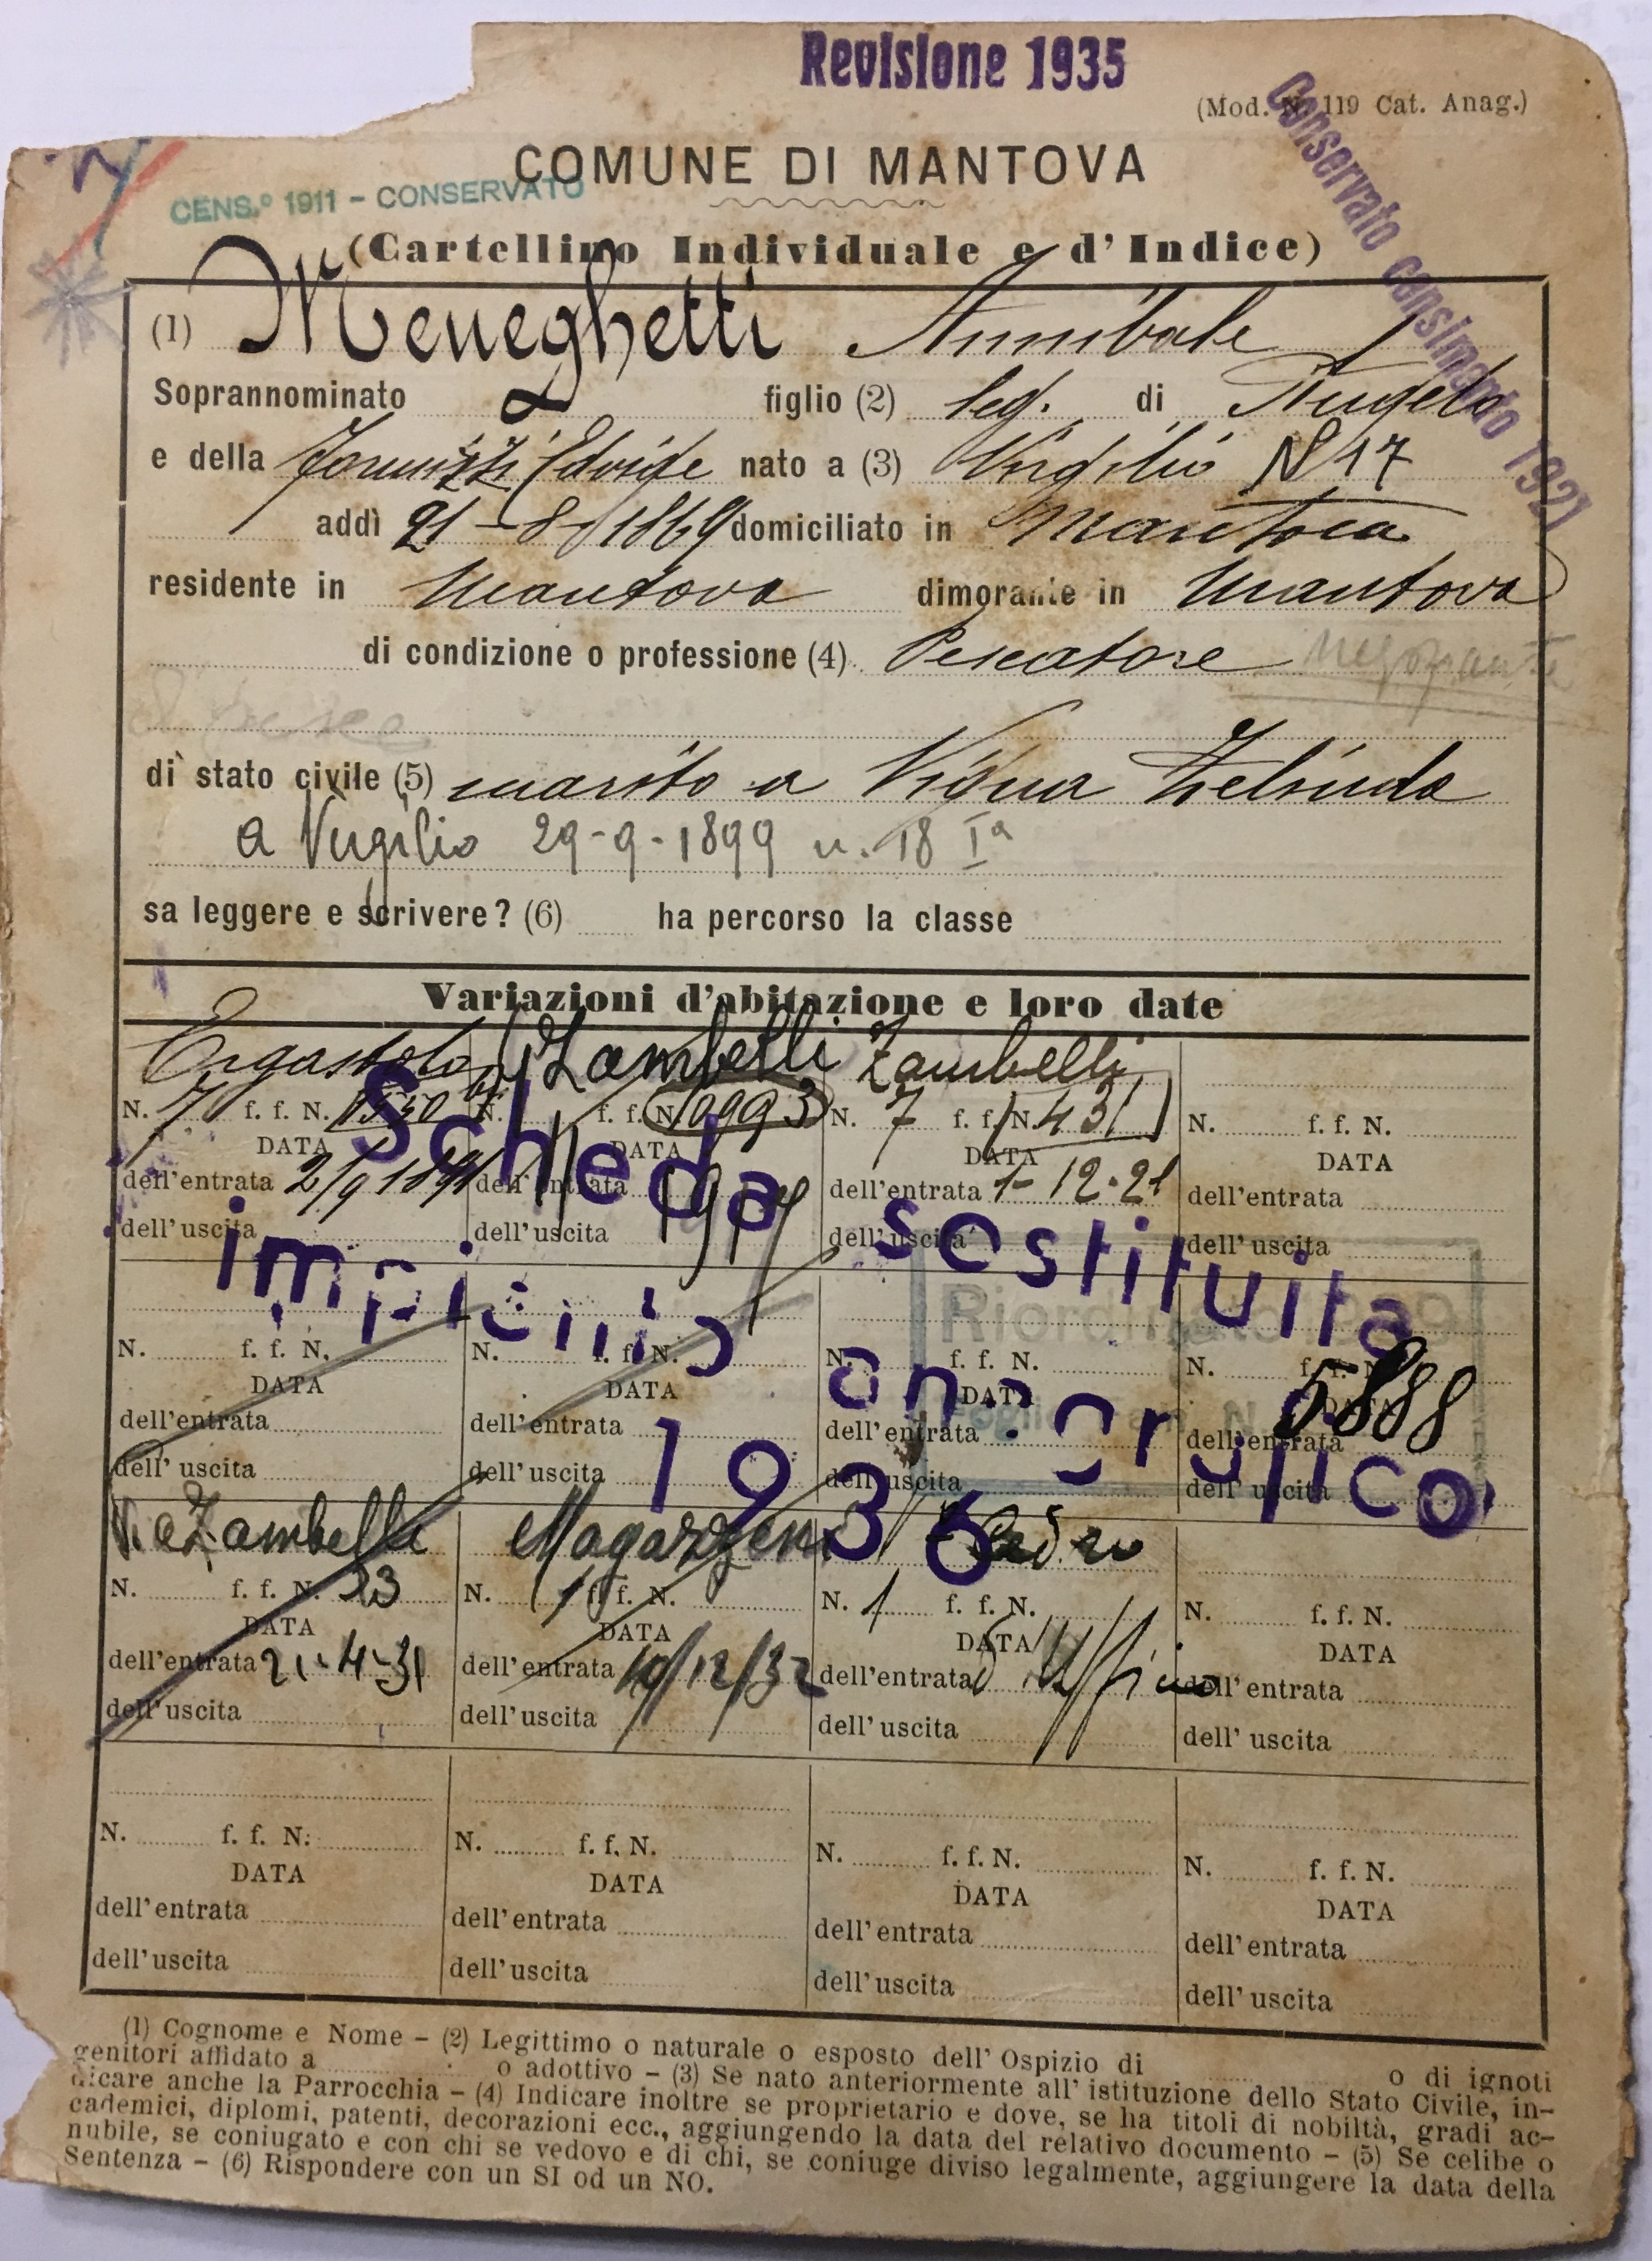 Revisione 1935
(Mod. N. 119 Cat. Anag.)
Conservato censimento 1921
COMUNE DI MANTOVA
CENS.º 1911 - CONSERVATO
(Cartellino Individuale e d'Indice)
(1) Meneghetti Annibale
Soprannominato figlio (2) leg. di Angelo
e della Edvige nato a (3) Virgilio N 17
addì 21-8-1869 domiciliato in Mantova
residente in Mantova dimorante in Mantova
di condizione o professione (4) Pescatore negoziante
di stato civile (5) marito a Vigna Zelinda
a Virgilio 29-9-1899 n. 18 Iª
sa leggere e scrivere? (6) ha percorso la classe
Variazioni d'abitazione e loro date
Ergastolo Zambelli Zambelli
N. 7 f. f. N. 1550 N. f. f. N. 10993 N. 7 f. f. N. 431 N. f. f. N.
DATA DATA DATA DATA
dell'entrata 2/9 1891 dell'entrata dell'entrata 1-12-21 dell'entrata
dell'uscita dell'uscita dell'uscita dell'uscita
Scheda sostituita
impianto anagrafico
1936
N. f. f. N. N. f. f. N. N. f. f. N. N. f. f. N.
DATA DATA DATA DATA
5888
dell'entrata dell'entrata dell'entrata dell'entrata
dell'uscita dell'uscita dell'uscita dell'uscita
Via Zambelli Cedro
N. f. f. N. 23 N. f. f. N. N. 1 f. f. N. N. f. f. N.
DATA DATA DATA DATA
dell'entrata 21-4-31 dell'entrata 10/12/32 dell'entrata d'Ufficio dell'entrata
dell'uscita dell'uscita dell'uscita dell'uscita
N. f. f. N. N. f. f. N. N. f. f. N. N. f. f. N.
DATA DATA DATA DATA
dell'entrata dell'entrata dell'entrata dell'entrata
dell'uscita dell'uscita dell'uscita dell'uscita
(1) Cognome e Nome - (2) Legittimo o naturale o esposto dell'Ospizio di
genitori affidato a o adottivo - (3) Se nato anteriormente all'istituzione dello Stato Civile, in- o di ignoti
dicare anche la Parrocchia - (4) Indicare inoltre se proprietario e dove, se ha titoli di nobiltà, gradi ac-
cademici, diplomi, patenti, decorazioni ecc., aggiungendo la data del relativo documento - (5) Se celibe o
nubile, se coniugato e con chi se vedovo e di chi, se coniuge diviso legalmente, aggiungere la data della
Sentenza - (6) Rispondere con un SI od un NO.